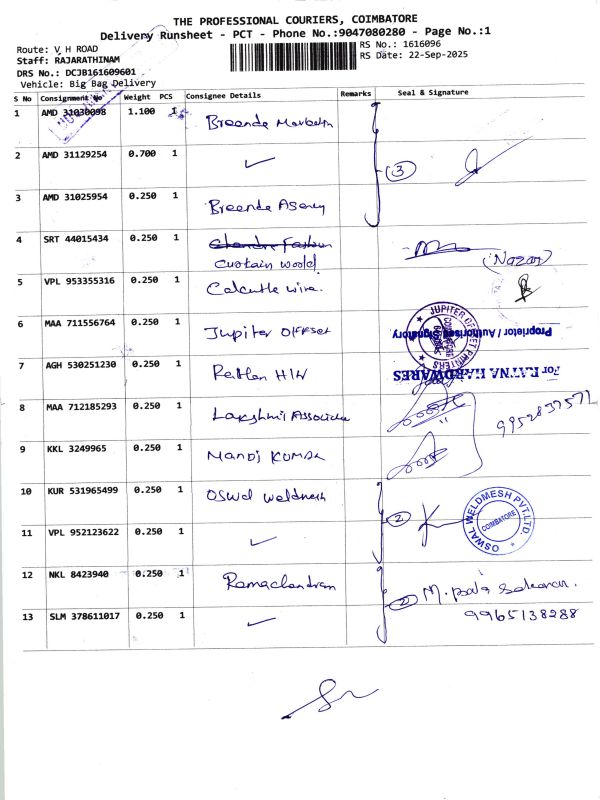 THE PROFESSIONAL COURIERS, COIMBATORE
Delivery Runsheet - PCT - Phone No.:9047080280 - Page No.:1
Route: V H ROAD
RS No.: 1616096
Staff: RAJARATHINAM
RS Date: 22-Sep-2025
DRS No.: DCJB161609601
Vehicle: Big Bag Delivery
S No Consignment No Weight PCS Consignee Details Remarks Seal & Signature
1 AMD 31030098 1.100 1 Breenda
2 AMD 31129254 0.700 1 ✓
3
3 AMD 31025954 0.250 1 Breenda Agency
4 SRT 44015434 0.250 1
curtain world (Nazar)
5 VPL 953355316 0.250 1 Calcutta wire.
6 MAA 711556764 0.250 1 Jupiter Offset
JUPITER OFFSET PRINTERS
Proprietor / Authorised Signatory
7 AGH 530251230 0.250 1 H/W
For RATNA HARDWARES
8 MAA 712185293 0.250 1 Lakshmi Associate
9952837571
9 KKL 3249965 0.250 1 Manoj Kumar
10 KUR 531965499 0.250 1 Oswal weldmesh
2
OSWAL WELDMESH PVT.LTD.
COIMBATORE
11 VPL 952123622 0.250 1 ✓
12 NKL 8423940 0.250 1 Ramachandran
2 M. bala
9965138288
13 SLM 378611017 0.250 1 ✓